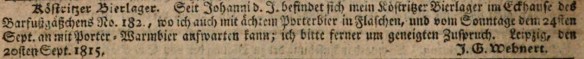 Köstritzer Bierlager. Seit Johanni d. J. befindet sich mein Köstritzer Bierlager im Eckhause des
Barfußgäßchens No. 182., wo ich auch mit ächtem Porterbier in Flaschen, und vom Sonntage dem 24sten
Sept. an mit Porter-Warmbier aufwarten kann; ich bitte ferner um geneigten Zuspruch. Leipzig, den
20sten Sept. 1815. J. G. Wehnert.